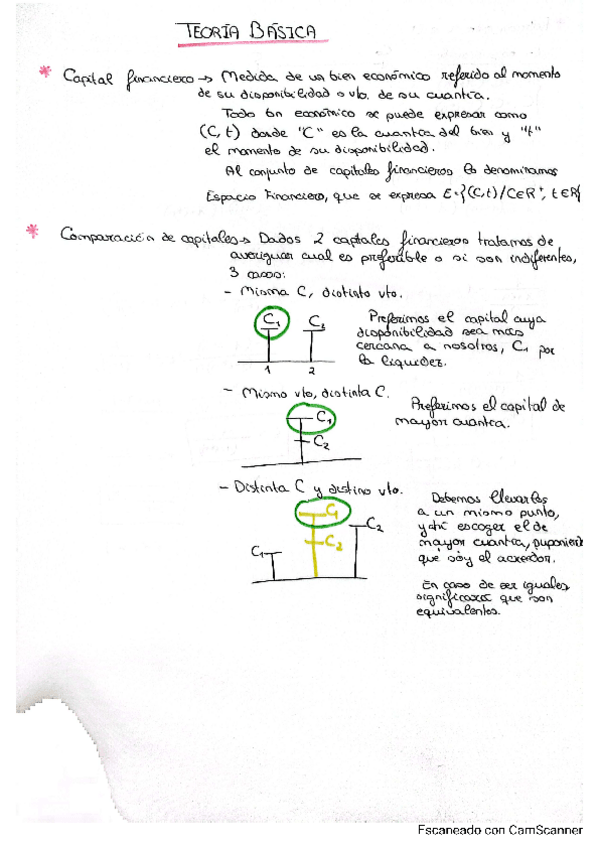 TEORÍA BÁSICA
* Capital financiero → Medida de un bien económico referido al momento
de su disponibilidad o vto. de su cuantía.
Todo bn económico se puede expresar como
(C, t) donde "C" es la cuantía del bien y "t"
el momento de su disponibilidad.
Al conjunto de capitales financieros lo denominamos
Espacio Financiero, que se expresa E={(C,t)/C∈R⁺, t∈R}
* Comparación de capitales → Dados 2 captales financieros tratamos de
averiguar cual es preferible o si son indiferentes,
3 casos:
- Misma C, distinto vto.
C₁ C₂
1 2
Preferimos el capital cuya
disponibilidad sea más
cercana a nosotros, C₁ por
la liquidez.
- Mismo vto, distinta C.
C₁
C₂
Preferimos el capital de
mayor cuantía.
- Distinta C y distino vto.
C₁
C₂
C₁
C₂
Debemos llevarlos
a un mismo punto,
y ahí escoger el de
mayor cuantía,
que soy el acreedor.
En caso de ser iguales
significará que son
equivalentes.
Escaneado con CamScanner